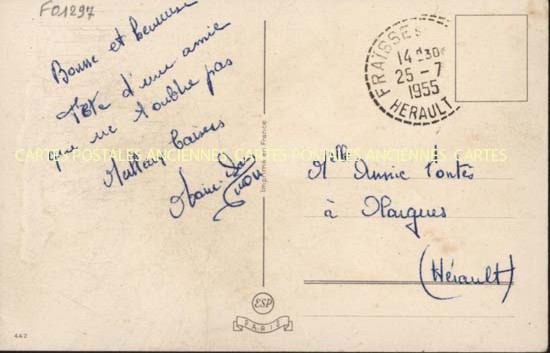 F01297
Bonne et heureuse
Fête d'une amie
qui ne t'oublie pas
baisers
CARTES POSTALES ANCIENNES CARTES POSTALES ANCIENNES CARTES
Imprimé en France
FRAÏSSE s
14 H30
25 - 7
1955
HERAULT
Mlle Annie
à
(Hérault)
ESP
PARIS
442